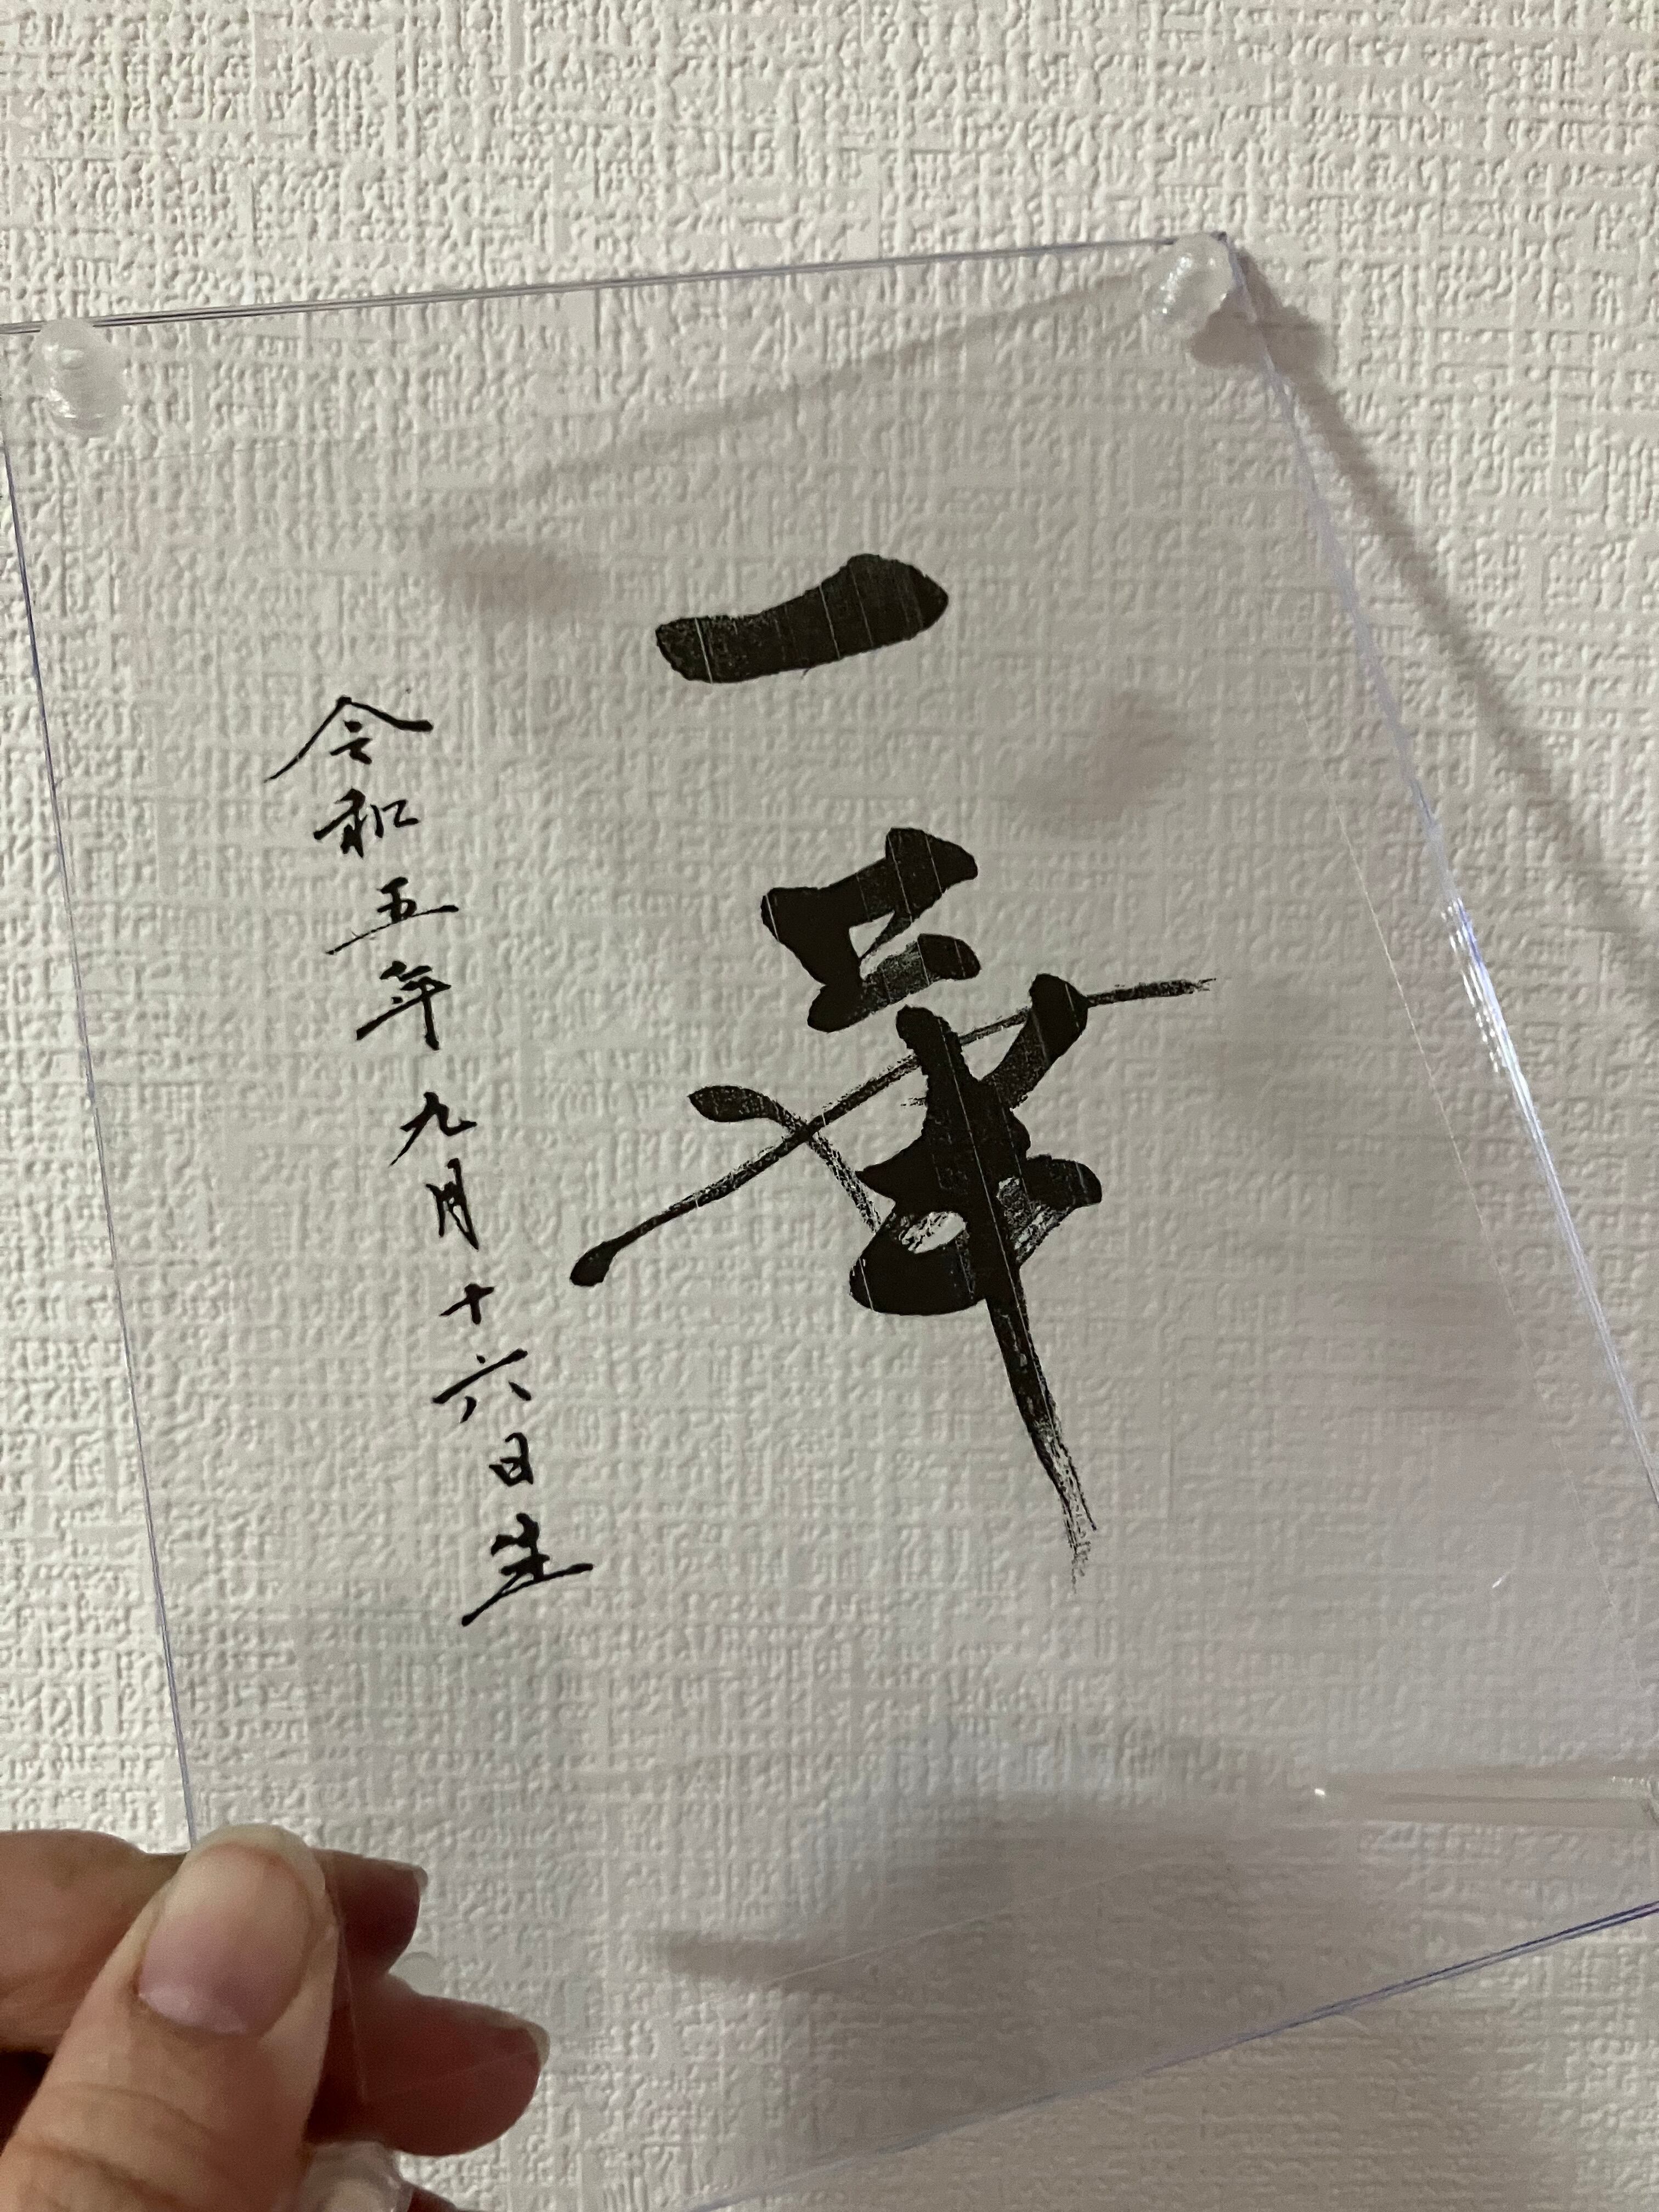 一
令和五年九月十六日生